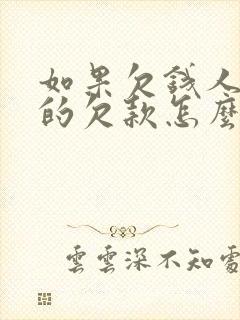 如果欠錢人
的欠款怎麼
雲雲深不知處